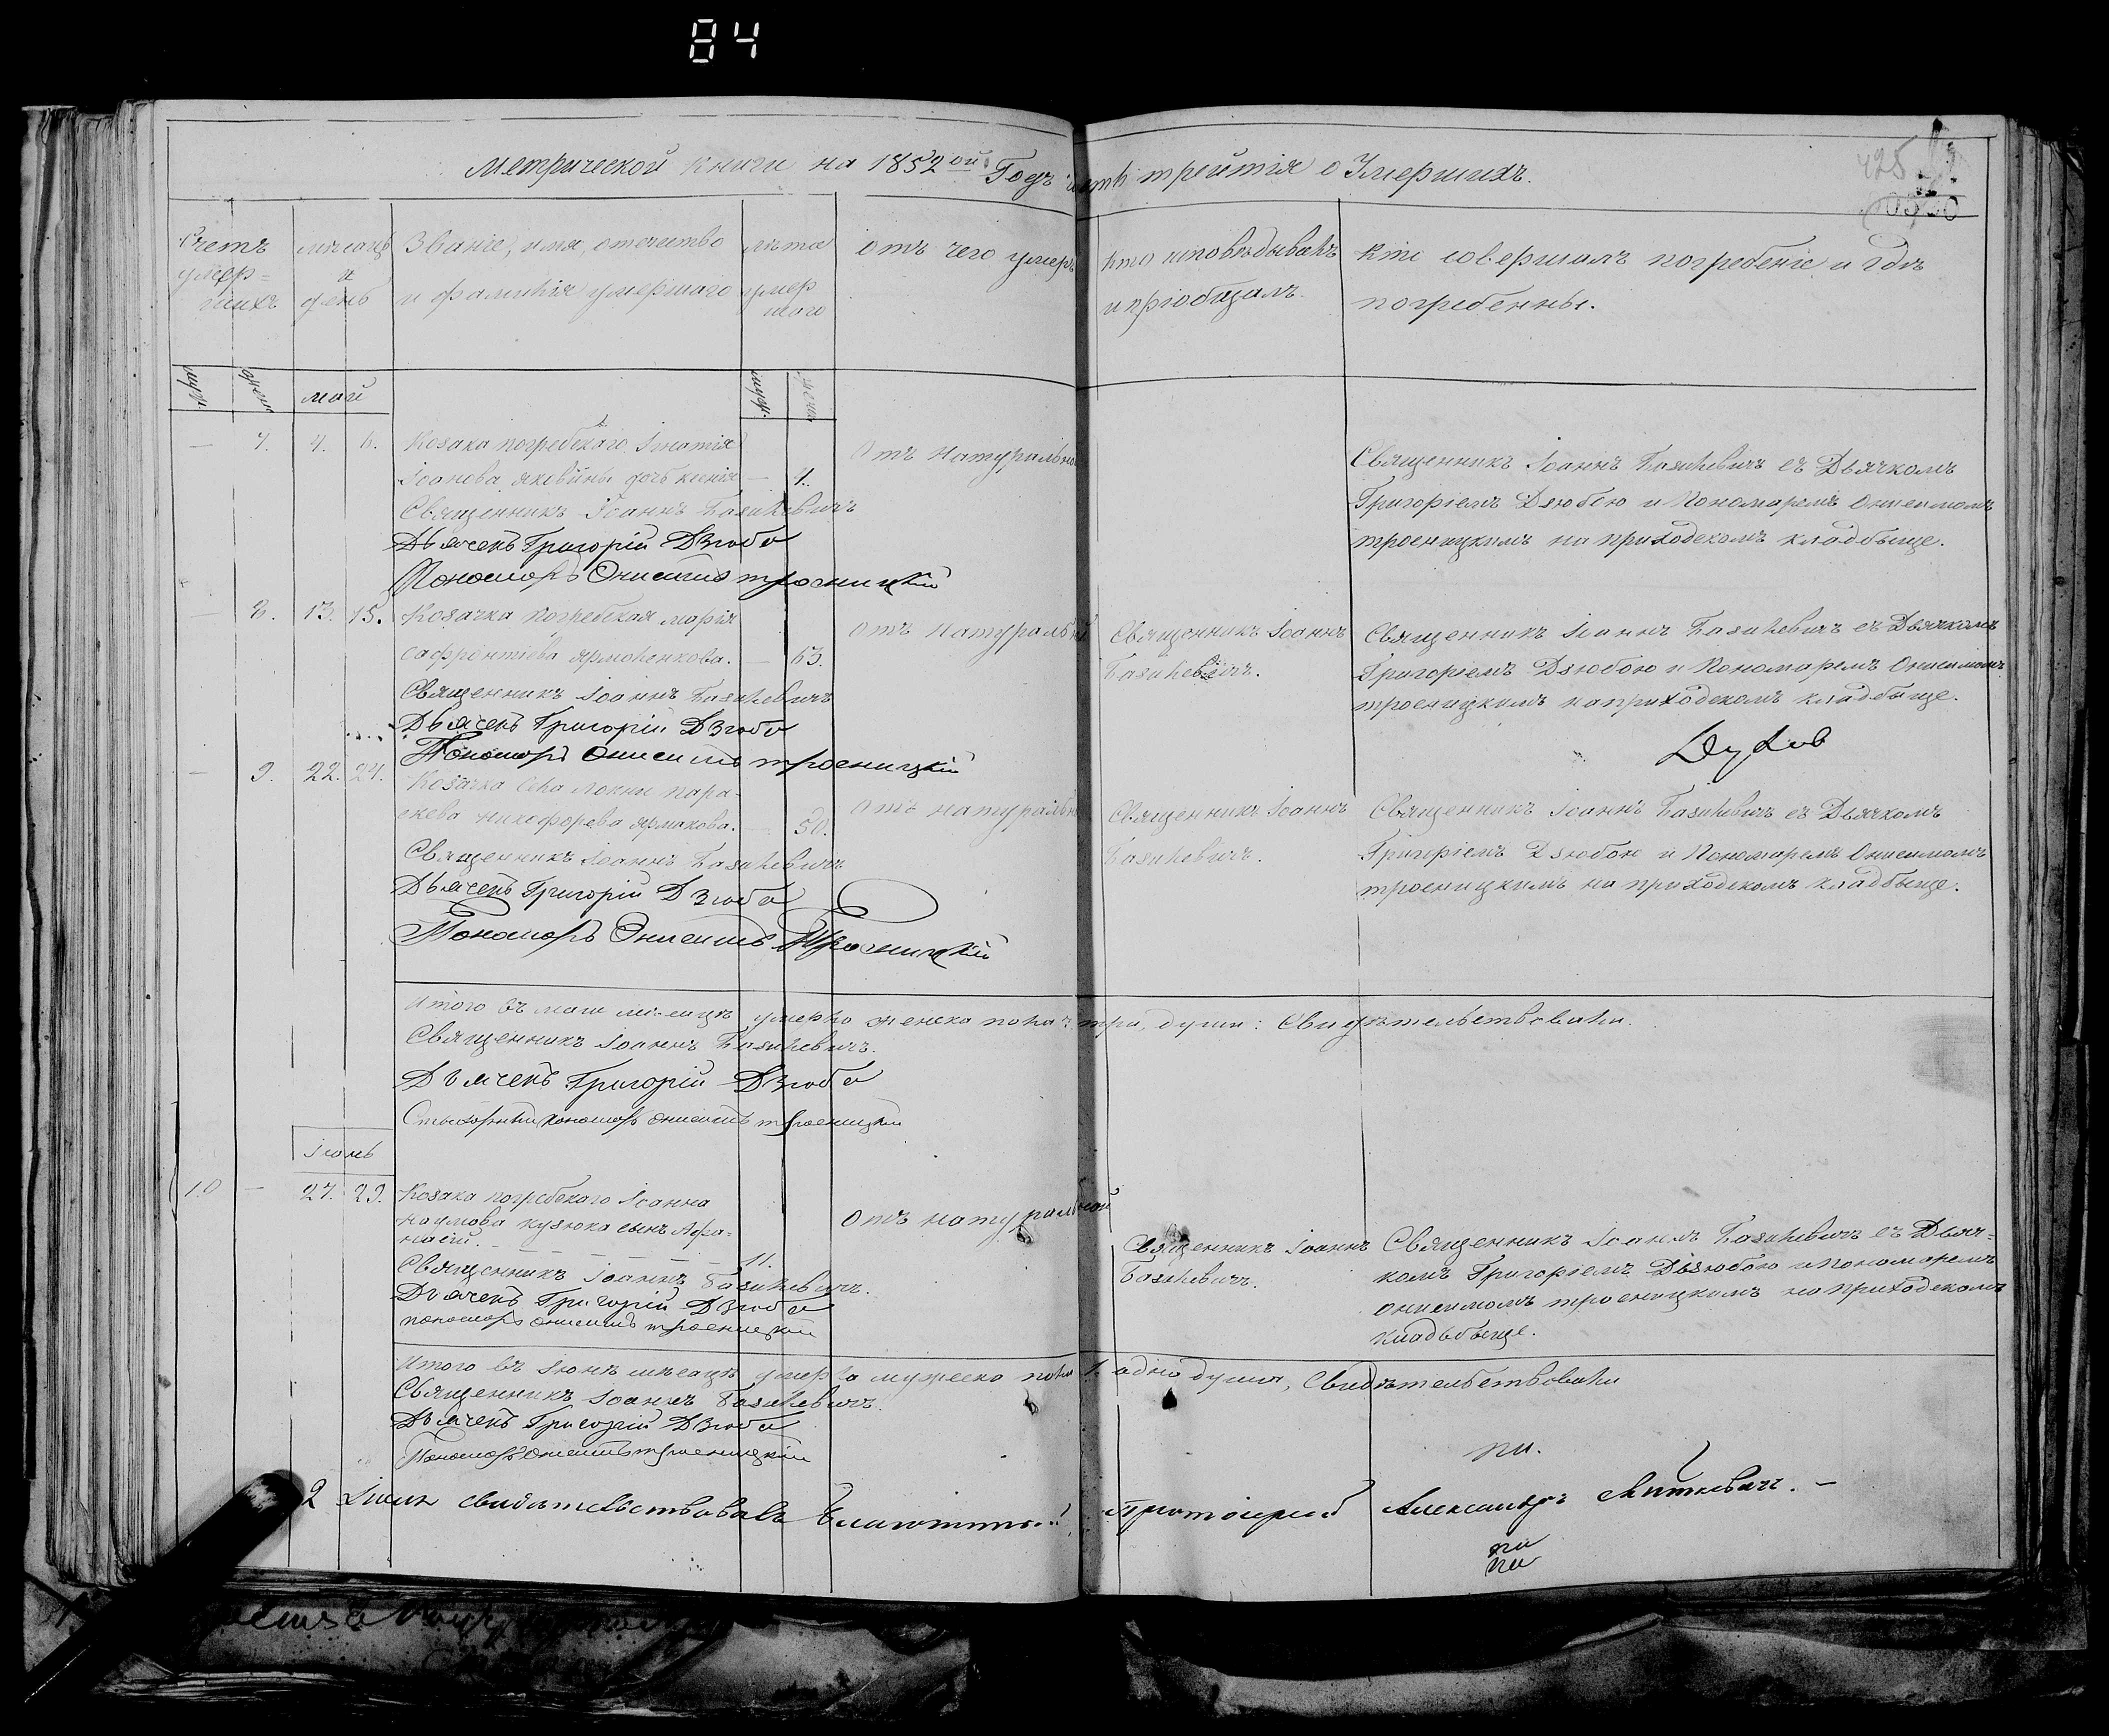 84
Метрической книги на 1852ой Годъ часть трейтія о Умершихъ.
425
Счетъ умер=шихъ
мѣсяцъ и день
Званіе, имя, отечество и фамилія умершаго
лѣта умер шаго
отъ чего умеръ
кто исповѣдывалъ и пріобщалъ.
кто совершалъ погребеніе и гдѣ погребенны.
май
7. 4. 6. Козака погребскаго Игнатія
Іоанова яковины дочь ксенія — 1.
отъ натуральной
Священникъ Іоаннъ Базилевичъ
Дьячекъ Григорій Дзюба
Пономарь Онисимъ троеницкій
Священникъ Іоаннъ Базилевичъ съ Дьячкомъ
Григоріемъ Дзюбою и Пономаремъ Онисимомъ
троеницкимъ на приходскомъ кладбыще.
8. 13. 15. Козачка погребская марія
сафронтіева ярмоленкова. — 63.
отъ натуральной
Священникъ Іоаннъ Базилевичъ
Дьячекъ Григорій Дзюба
Пономарь Онисимъ троеницкій
Священникъ Іоаннъ
Базилевичъ.
Священникъ Іоаннъ Базилевичъ съ Дьячкомъ
Григоріемъ Дзюбою и Пономаремъ Онисимомъ
троеницкимъ на приходскомъ кладбыще.
9. 22. 24. Козачка пара-
скева никофорова ярмакова. — 50.
отъ натуральной
Священникъ Іоаннъ Базилевичъ
Дьячекъ Григорій Дзюба
Пономарь Онисимъ Троеницкій
Священникъ Іоаннъ
Базилевичъ.
Священникъ Іоаннъ Базилевичъ съ Дьячкомъ
Григоріемъ Дзюбою и Пономаремъ Онисимомъ
троеницкимъ на приходскомъ кладбыще.
Итого въ маи мѣсяцѣ умерло женска пола три души: Свидѣтельствовали.
Священникъ Іоаннъ Базилевичъ.
Дьячекъ Григорій Дзюба
пономарь Онисимъ троеницкій
Іюнь
10 — 27. 29. Козака погребскаго Іоанна
наумова кузюка сынъ Афа=
насій. — 11.
отъ натуральной
Священникъ Іоаннъ Базилевичъ.
Дьячекъ Григорій Дзюба
пономарь Онисимъ троеницкій
Священникъ Іоаннъ
Базилевичъ.
Священникъ Іоаннъ Базилевичъ съ Дьяч-
комъ Григоріемъ Дзюбою и пономаремъ
онисимомъ троеницкимъ на приходскомъ
кладьбыще.
Итого въ Іюнѣ мѣсяцѣ умерла мужеска пола 1. одна душа, Свидѣтельствовали
Священникъ Іоаннъ Базилевичъ.
Дьячекъ Григорій Дзюба
Пономарь Онисимъ троеницкій
2 Іюля свидѣтельствовалъ Благочинный Протоіерей Александръ